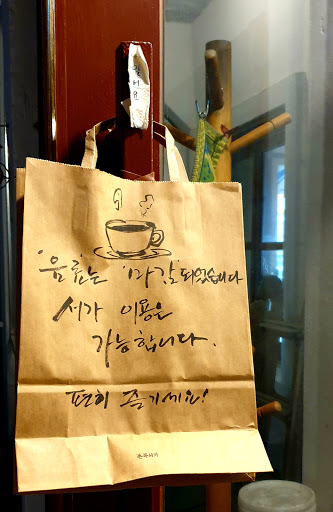 '음료'는 '마감'되었습니다
서가 이용은
가능합니다.
편히 즐기세요!